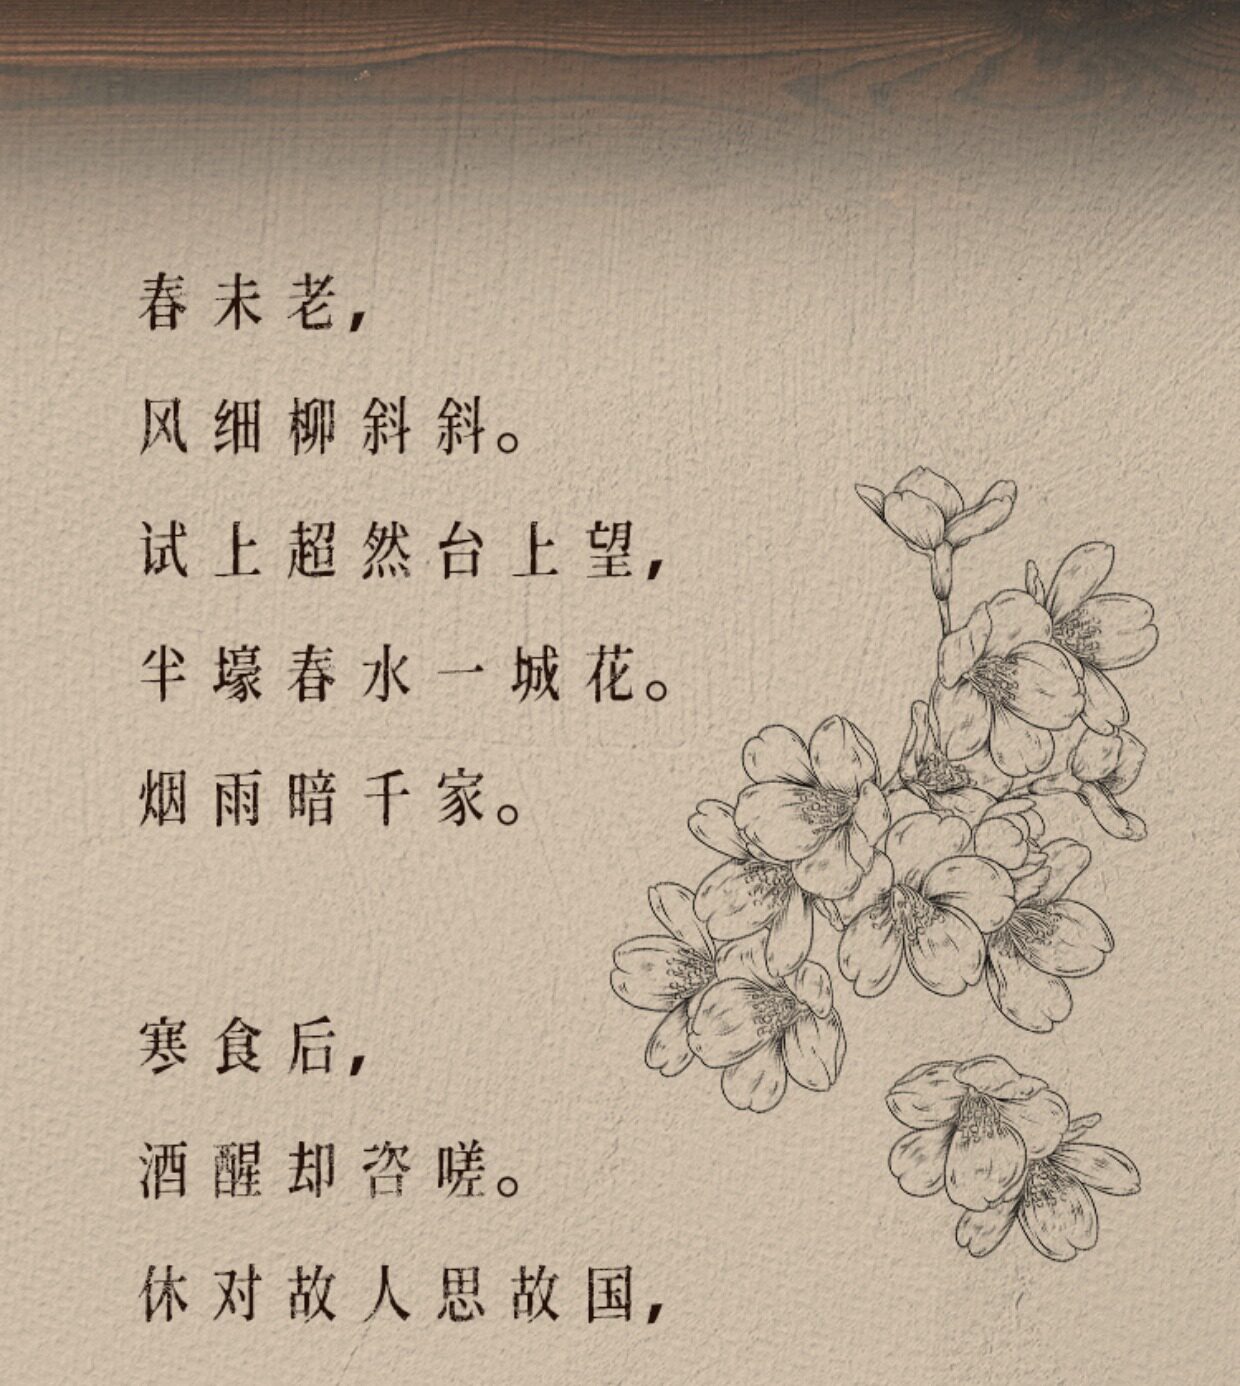 春未老，
风细柳斜斜。
试上超然台上望，
半壕春水一城花。
烟雨暗千家。
寒食后，
酒醒却咨嗟。
休对故人思故国，